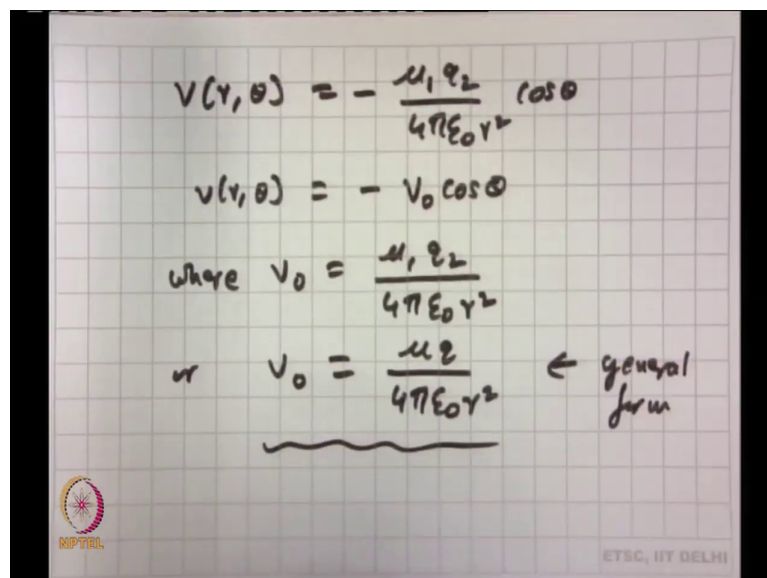 V(r, θ) = - μ₁q₂/4πε₀r² cosθ
v(r, θ) = - V₀ cosθ
where V₀ = μ₁q₂/4πε₀r²
or V₀ = μq/4πε₀r² ← general form
NPTEL
ETSC, IIT DELHI